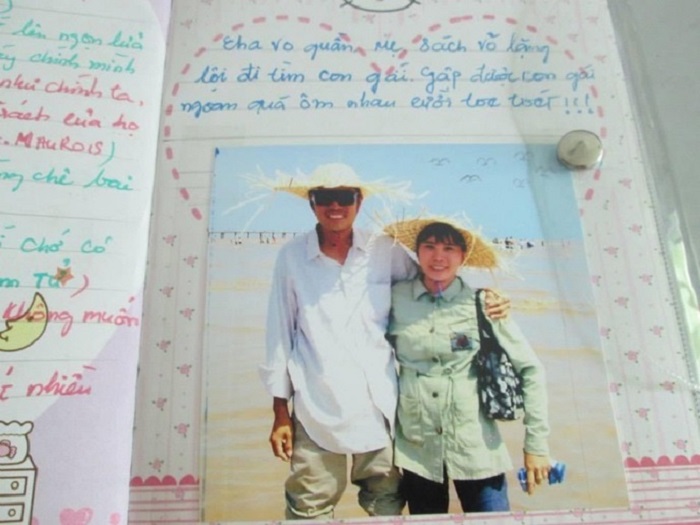 lên ngọn lửa
chính mình
như chính ta,
trách của họ
MAUROIS)
chê bai
Chớ có
Tử)
không muốn
nhiều
Cha vo quần, mẹ sách võ lặng
lội đi tìm con gái. Gặp được con gái
ngoan quá ôm nhau cười toe toét!!!